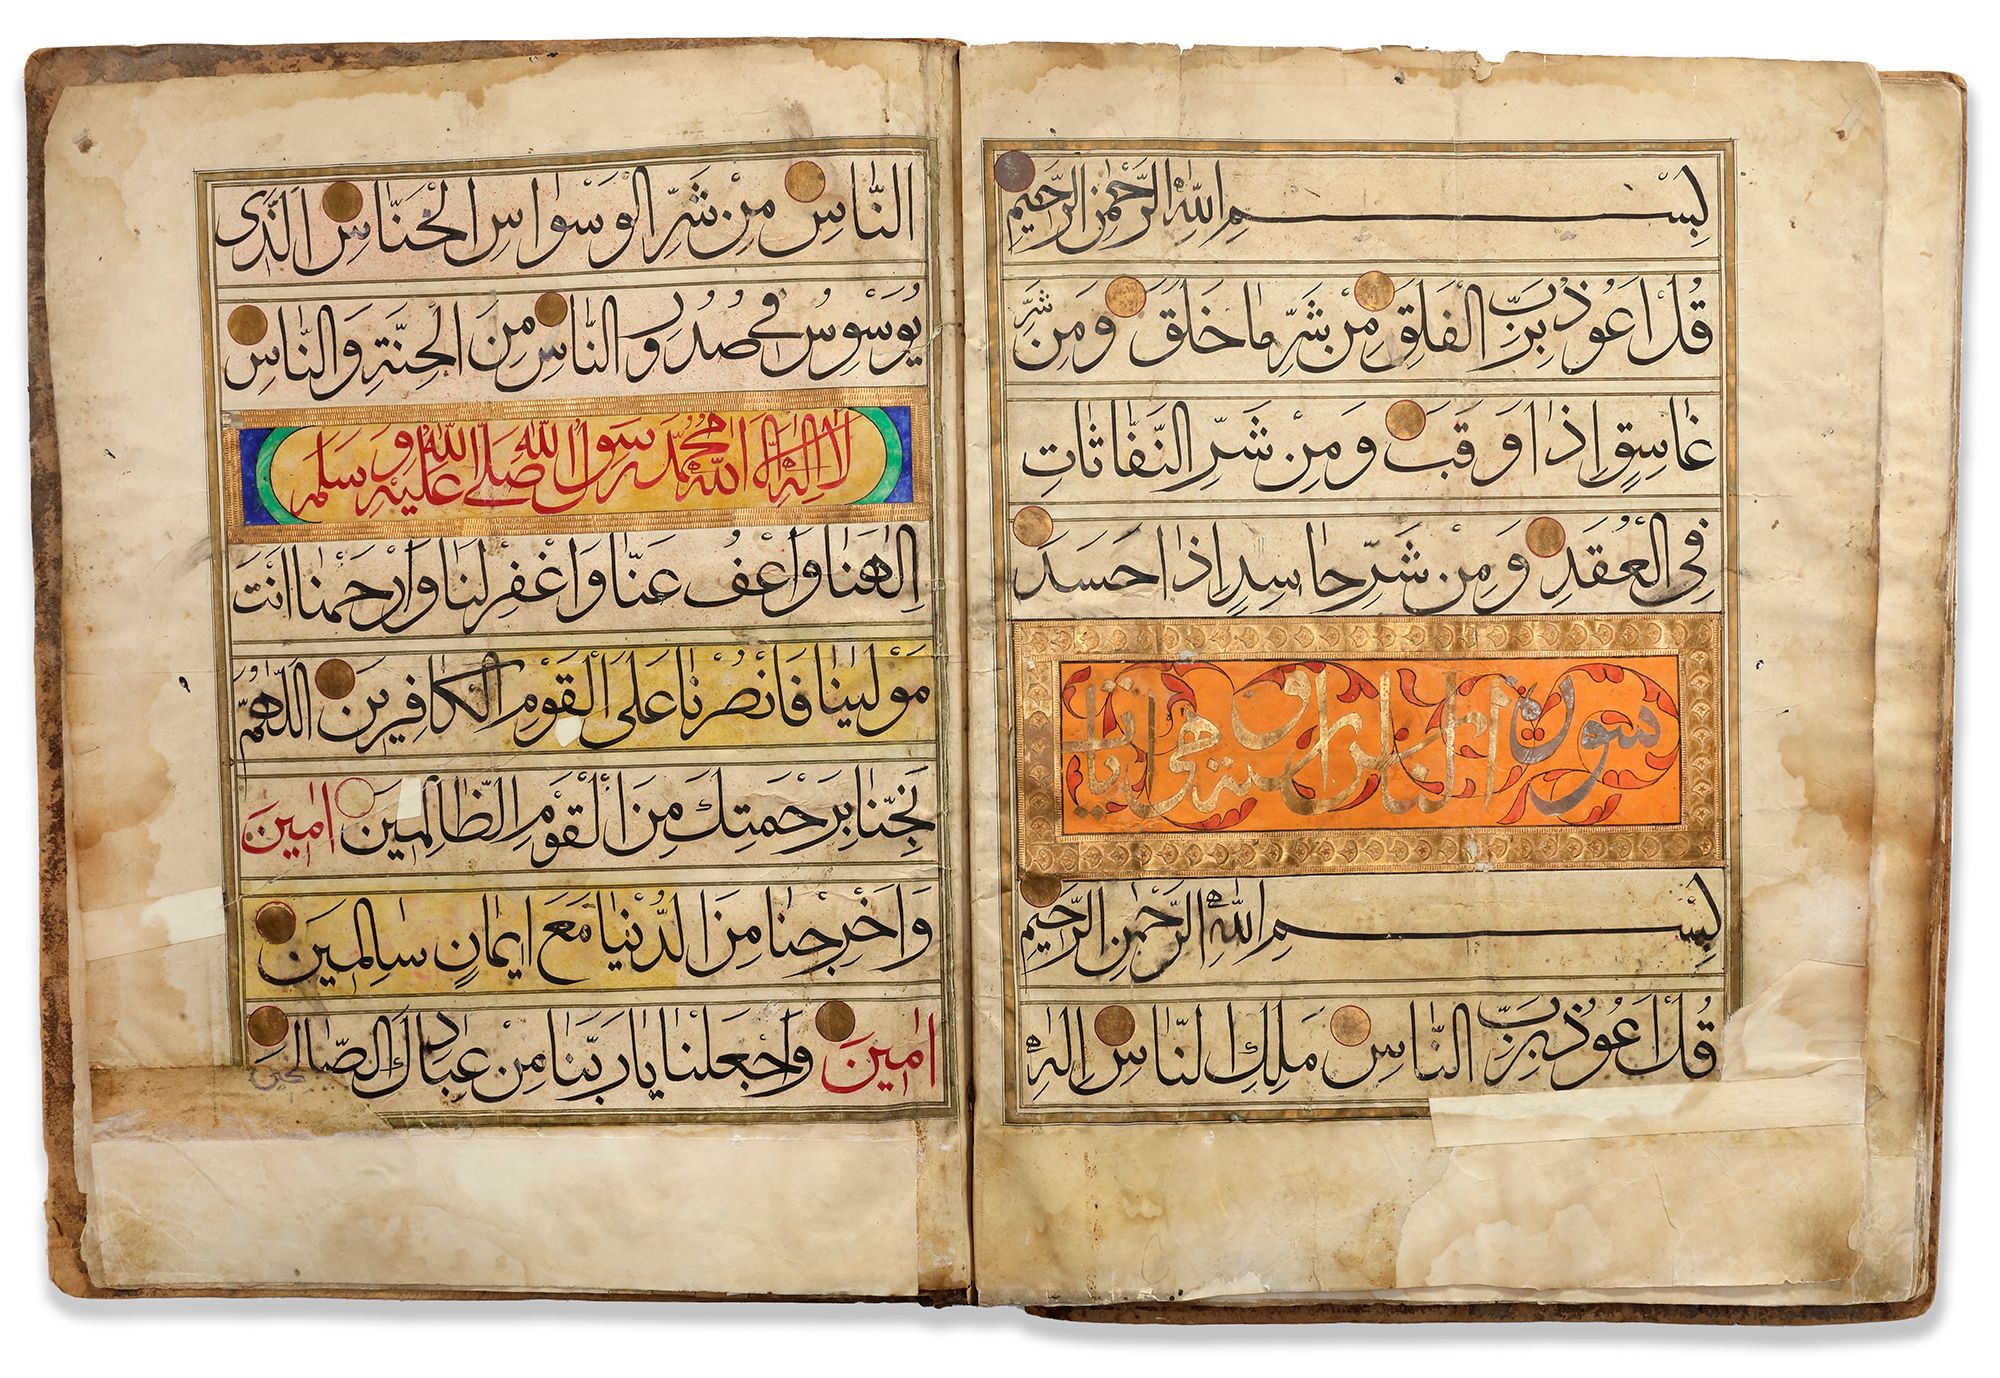 بِسْمِ اللّٰهِ الرَّحْمٰنِ الرَّحِيمِ
قُلْ اَعُوذُ بِرَبِّ الْفَلَقِ مِنْ شَرِّ مَا خَلَقَ وَمِنْ شَرِّ
غَاسِقٍ اِذَا وَقَبَ وَمِنْ شَرِّ النَّفَّاثَاتِ
فِي الْعُقَدِ وَمِنْ شَرِّ حَاسِدٍ اِذَا حَسَدَ
سورة الناس
بِسْمِ اللّٰهِ الرَّحْمٰنِ الرَّحِيمِ
قُلْ اَعُوذُ بِرَبِّ النَّاسِ مَلِكِ النَّاسِ اِلٰهِ
النَّاسِ مِنْ شَرِّ الْوَسْوَاسِ الْخَنَّاسِ الَّذِى
يُوَسْوِسُ فِي صُدُورِ النَّاسِ مِنَ الْجِنَّةِ وَالنَّاسِ
لا اله الا الله محمد رسول الله صلى الله عليه وسلم
اِلٰهَنَا وَاعْفُ عَنَّا وَاغْفِرْ لَنَا وَارْحَمْنَا اَنْتَ
مَوْلَيٰنَا فَانْصُرْنَا عَلَى الْقَوْمِ الْكَافِرِينَ اَللّٰهُمَّ
نَجِّنَا بِرَحْمَتِكَ مِنَ الْقَوْمِ الظَّالِمِينَ اٰمِينَ
وَاَخْرِجْنَا مِنَ الدُّنْيَا مَعَ اِيمَانٍ سَالِمِينَ
اٰمِينَ وَاجْعَلْنَا يَا رَبَّنَا مِنْ عِبَادِكَ الصَّالِحِينَ